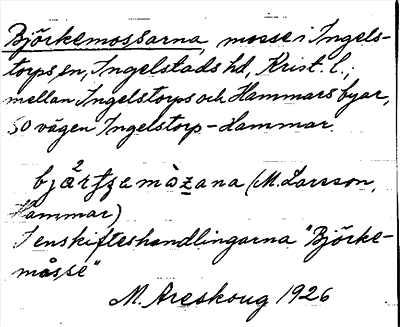 Björkemossarna, mosse i Ingels-
torps sn, Ingelstads hd, Krist. l.;
mellan Ingelstorps och Hammars byar,
SO vägen Ingelstorp – Hammar.
(M. Larsson,
Hammar)
I enskifteshandlingarna "Björke-
måsse"
M. Areskoug 1926